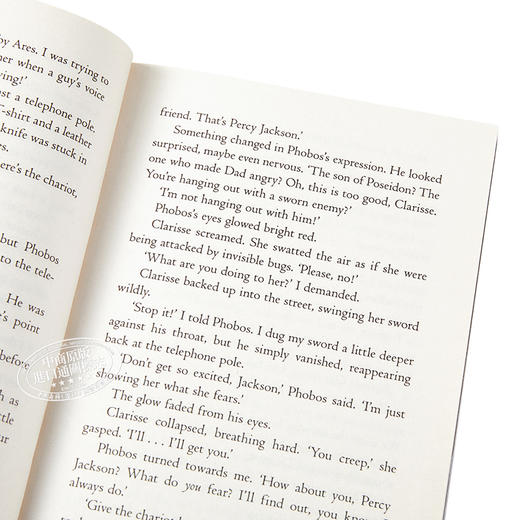 by Ares. I was trying to
her when a guy's voice
ving!'
st a telephone pole.
T-shirt and a leather
knife was stuck in
ere's the chariot,
but Phobos
to the tele-
He was
's point
before
as
ttle
ur
friend. That's Percy Jackson.'
Something changed in Phobos's expression. He looked
surprised, maybe even nervous. 'The son of Poseidon? The
one who made Dad angry? Oh, this is too good, Clarisse.
You're hanging out with a sworn enemy?'
'I'm not hanging out with him!'
Phobos's eyes glowed bright red.
Clarisse screamed. She swatted the air as if she were
being attacked by invisible bugs. 'Please, no!'
'What are you doing to her?' I demanded.
Clarisse backed up into the street, swinging her sword
wildly.
'Stop it!' I told Phobos. I dug my sword a little deeper
against his throat, but he simply vanished, reappearing
back at the telephone pole.
'Don't get so excited, Jackson,' Phobos said. 'I'm just
showing her what she fears.'
The glow faded from his eyes.
Clarisse collapsed, breathing hard. 'You creep,' she
gasped. 'I'll . . . I'll get you.'
Phobos turned towards me. 'How about you, Percy
Jackson? What do you fear? I'll find out, you know. I
always do.'
'Give the chariot
中商原版
进口通關图书